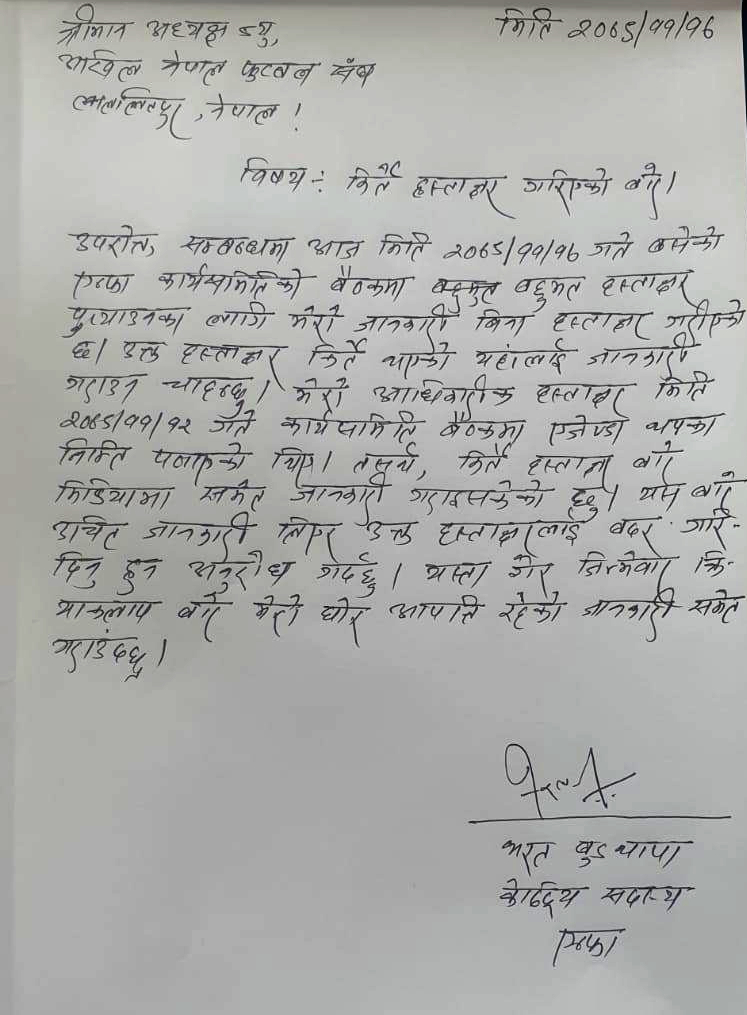 श्रीमान अध्यक्ष ज्यु,
मिति २०७९/११/१६
अखिल नेपाल फुटबल संघ
ललितपुर, नेपाल !
विषय : किर्ते हस्ताक्षर गरिएको बारे।
उपरोक्त सम्बन्धमा आज मिति २०७९/११/१६ गते बसेको
एन्फा कार्यसमितिको बैठकमा बहुमत हस्ताक्षर
पुर्‍याउनका लागि मेरो जानकारी बिना हस्ताक्षर गरीएको
छ। उक्त हस्ताक्षर किर्ते भएको यहाँलाई जानकारी
गराउन चाहन्छु। मेरो आधिकारीक हस्ताक्षर मिति
२०७९/११/१२ गते कार्यसमिति बैठकमा एजेण्डा थपका
निम्ति पठाएको थिए। तसर्थ, किर्ते हस्ताक्षर बारे
मिडियामा समेत जानकारी गराइसकेको छु। यस बारे
उचित जानकारी लिएर उक्त हस्ताक्षरलाई बदर गरि-
दिनु हुन अनुरोध गर्दछु। यस्ता गैर जिम्मेवार क्रि-
याकलाप बारे मेरो घोर आपत्ति रहेको जानकारी समेत
गराउंदछु।
भरत बुढाथापा
केन्द्रिय सदस्य
एन्फा